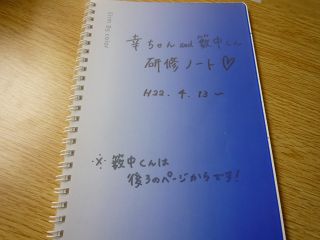 幸ちゃん and 籔中くん
研修ノート♡
H22. 4. 13 ~
※ 籔中くんは
後ろのページからです!